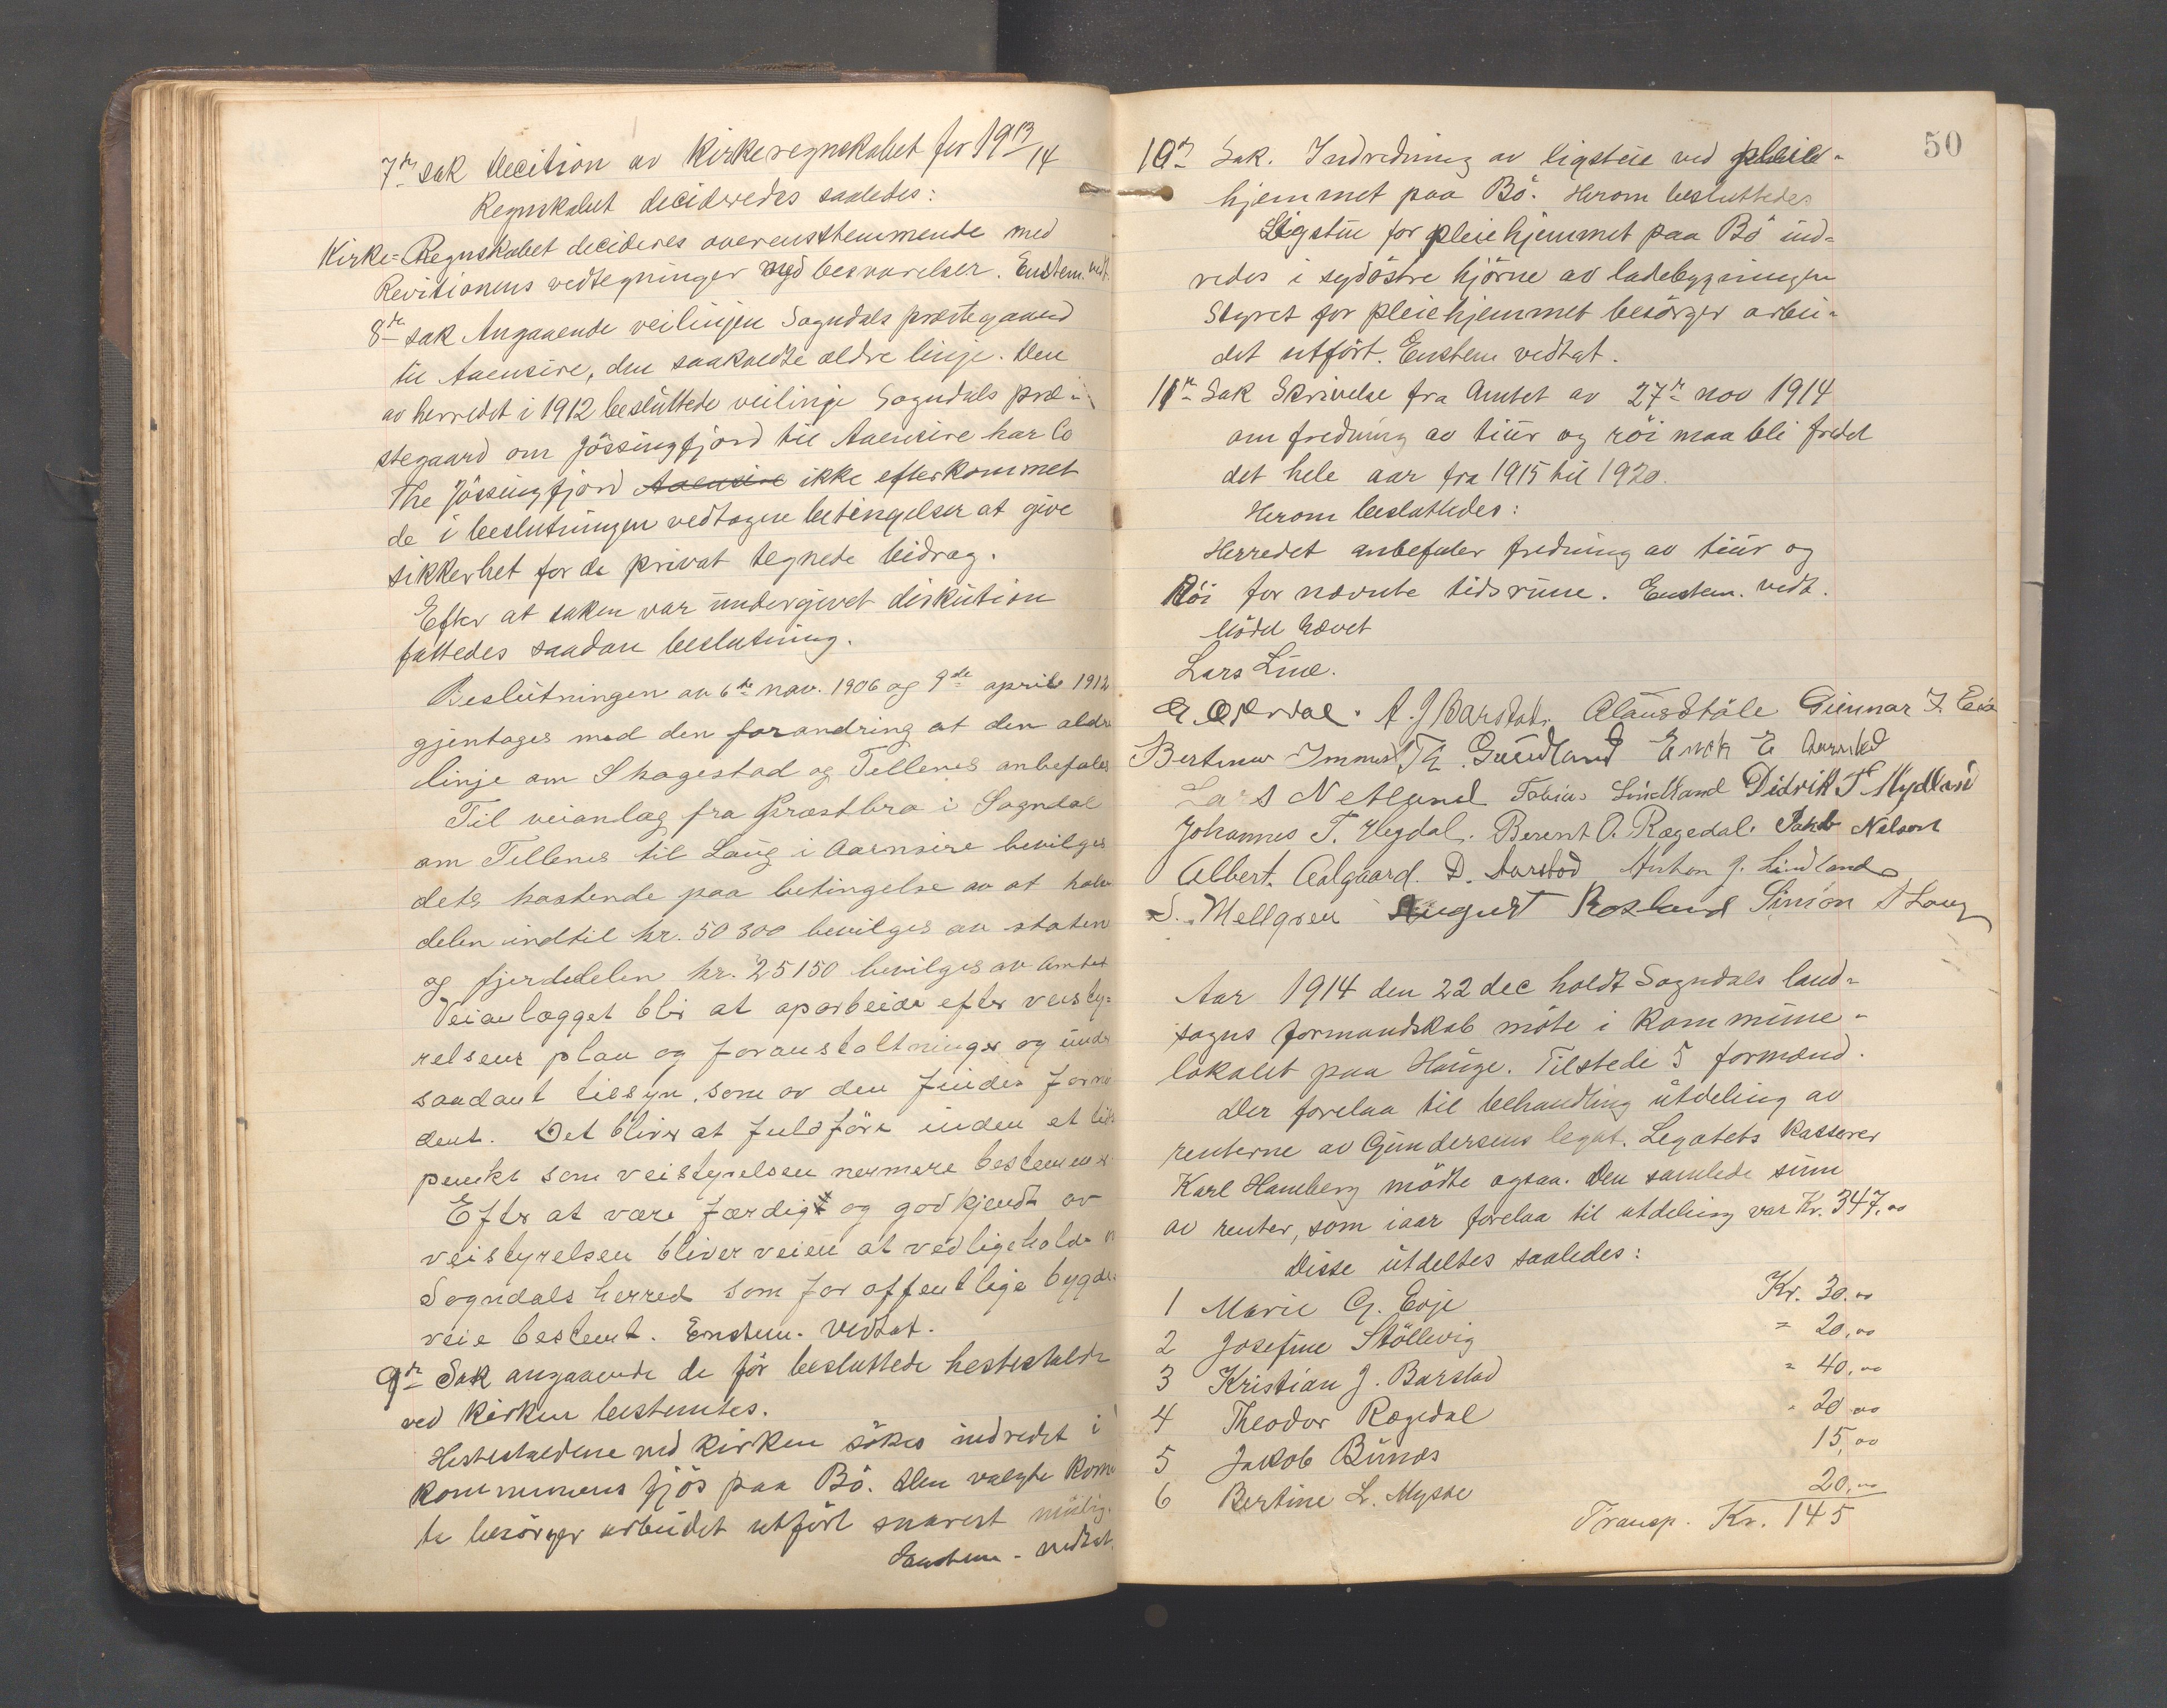 7de sak Decition av Kirkeregnskabet for 1913/14
Regnskabet decideredes saaledes:
Kirke-Regnskabet decideres overensstemmende med
Revitionens vedtegninger med besvarelser. Enstem. vedt.
8de sak Angaaende veilinjen Sogndals prestegaard
til Aaensire, den saakaldte ældre linje. Den
av herredet i 1912 besluttede veilinje Sogndals præ-
stegaard om Jøssingfjord til Aaensire har Co
The Jössingfjord Aaensire ikke efterkommet
de i beslutningen vedtagne betingelser at give
sikkerhet for de privat tegnede bidrag.
Efter at saken var undergivet diskution
fattedes saadan beslutning.
Beslutningen av 6te nov. 1906 og 9de april 1912
gjentages med den forandring at den ældr
linje om Skogestad og Tellenes anbefales
Til veianlæg fra Præstbro i Sogndal
om Tellenes til Laug i Aaensire bevilges
dets kostende paa betingelse av at halv
delen indtil kr. 50 300 bevilges av staten
og fjerdedelen kr. 25150 bevilges av Amtet
Veianlægget blir at oparbeide efter veisty-
relsens plan og foranstaltninger og under
saadant tilsyn, som av den findes forn
dent. Det bliver at fuldföre inden et tids
punkt som veistyrelsen nermere bestemmer.
Efter at være færdigt og godkjendt av
veistyrelsen bliver veien at vedligeholde
Sogndals herred som for offentlige bygde-
veie bestemt. Enstem. vedtat.
9de Sak angaaende de før besluttede hestestalde
ved kirken bestemtes.
Hestestaldene ved kirken sökes indredet i
kommunens fjös paa Bö. Den valgte kom
te besörger arbeidet utført snarest mulig.
Enstem. vedtat.
50
10de Sak. Indredning av ligstue ved pleie-
hjemmet paa Bö. Herom besluttedes
Ligstue for pleiehjemmet paa Bö ind-
redes i sydöstre hjörne av ladebygningen
Styret for pleiehjemmet besörger arbei-
det utfört. Enstem vedtat.
11te Sak Skrivelse fra Amtet av 27de nov 1914
om fredning av tiur og röi maa bli fredet
det hele aar fra 1915 til 1920.
Herom besluttedes:
Herredet anbefaler fredning av tiur og
Röi for nævnte tidsrum. Enstem. vedt.
Mödet hævet
Lars Line.
A. J Barstad. Claus Ståle Gunnar T. Eia
Bertinus Immerst. Th. Gursland Erick E Aarstad
Lars Netland Tobias Lindland Didrik T Mydland
Johannes T. Hegdal. Berent O. Rægedal. Jakob Nelson
Albert Aalgaard. D. Aarstad Anton J. Lindland
S. Mellgren August Rosland Simon S Laug
Aar 1914 den 22 dec holdt Sogndals land-
sogns formandskab möte i Kommune-
lokalet paa Hauge. Tilstede 5 formænd.
Der forelaa til behandling utdeling av
renterne av Gundersens legat. Legatets kasserer
Karl Hamberg mödte ogsaa. Den samlede sum
av renter, som iaar forelaa til utdeling var Kr. 347.00
Disse utdeltes saaledes:
1 Marie G. Evje Kr. 30.00
2 Josefine Stöllevig " 20,00
3 Kristian J. Barstad " 40,00
4 Theodor Rægedal " 20 00
5 Jakob Bunæs 15,00
6 Bertine L. Mysse 20,00
Transp. Kr. 145